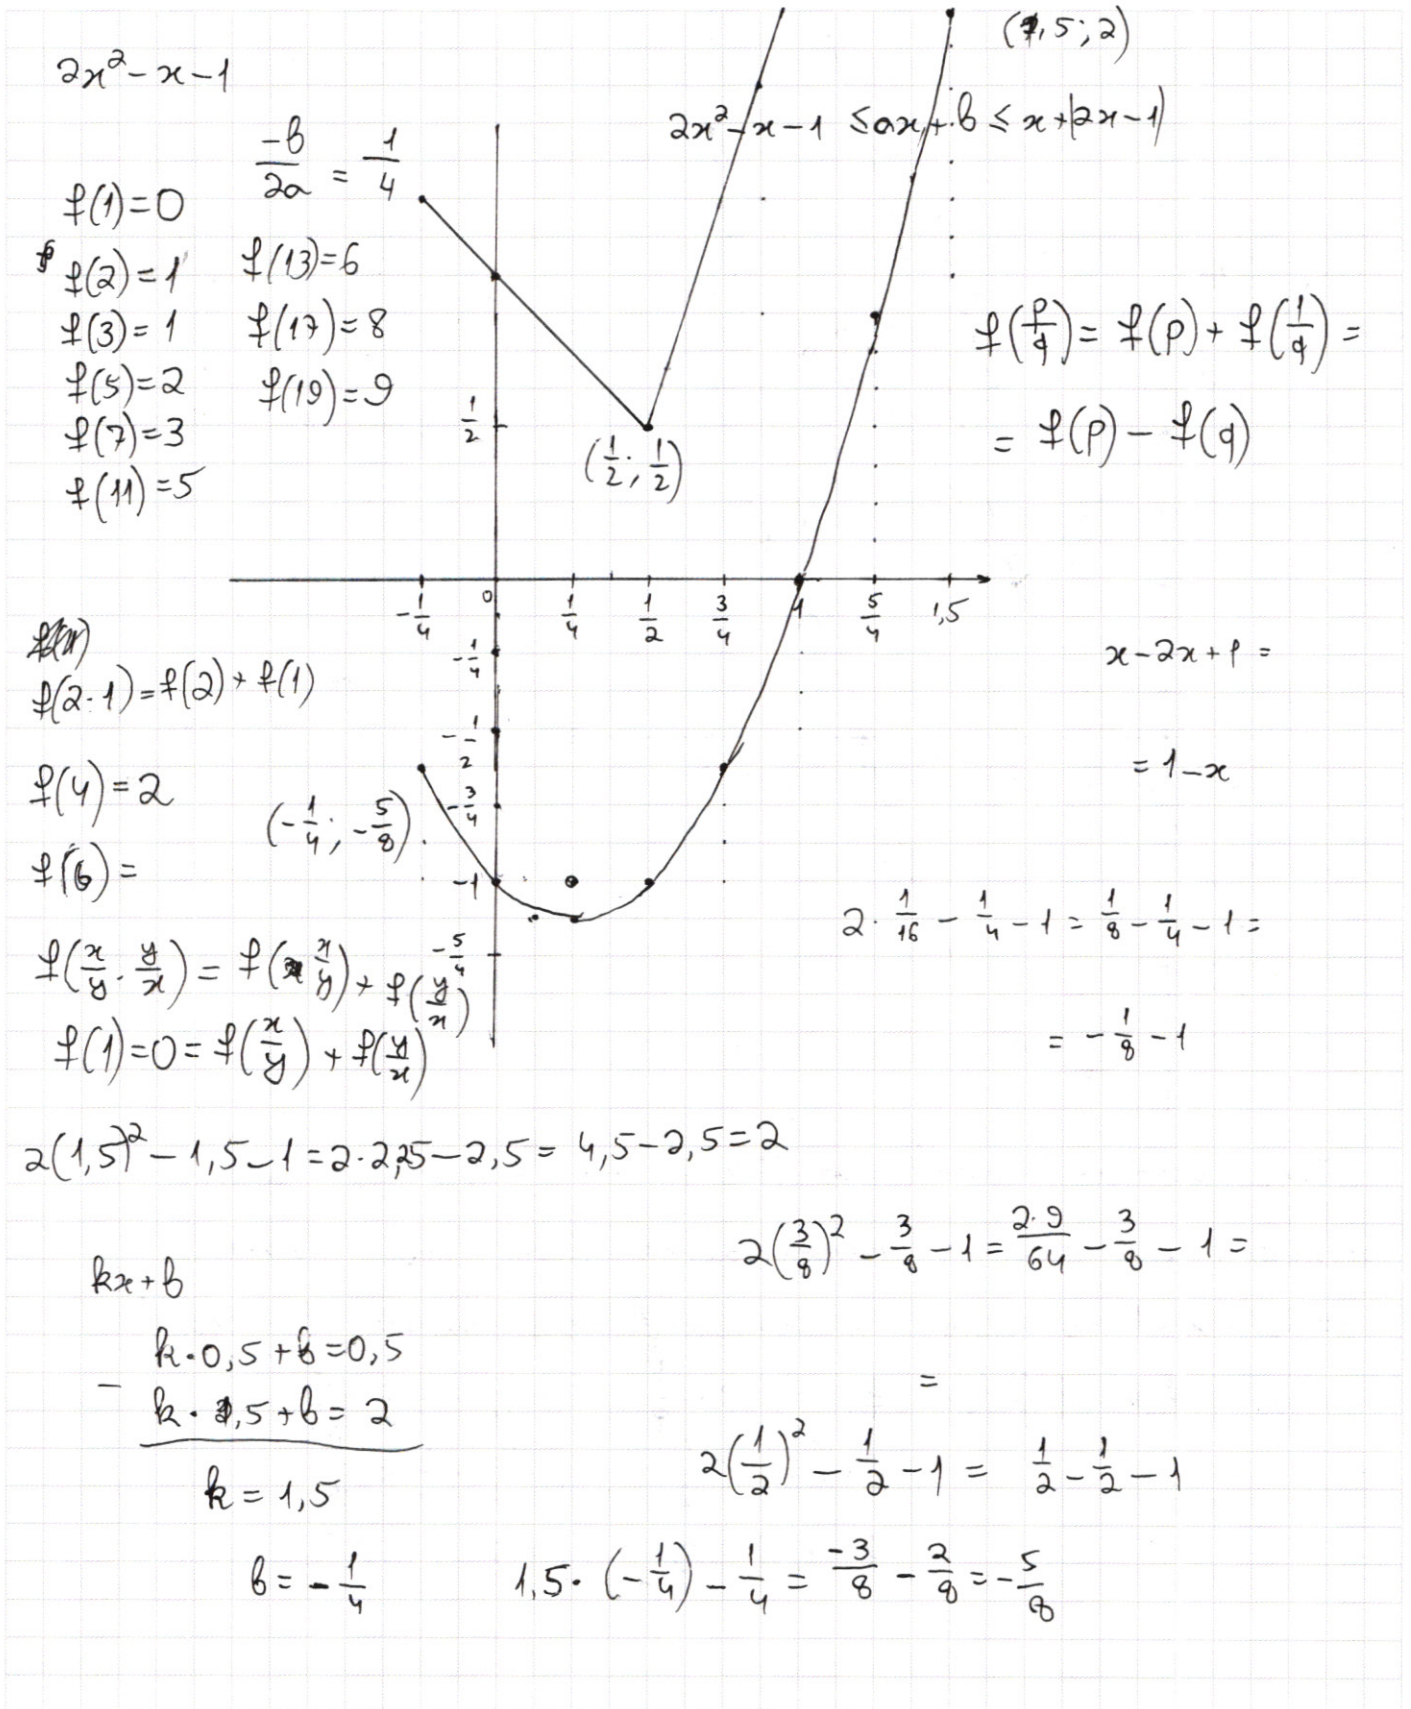 2x² - x - 1
-b/2a = 1/4
f(1)=0
f(2)=1
f(3)=1
f(5)=2
f(7)=3
f(11)=5
f(13)=6
f(17)=8
f(19)=9
(1,5; 2)
2x² - x - 1 ≤ ax + b ≤ x + |2x - 1|
f(p/q) = f(p) + f(1/q) =
= f(p) - f(q)
1/2
(1/2; 1/2)
-1/4 0 1/4 1/2 3/4 1 5/4 1,5
-1/4
-1/2
-3/4
-1
-5/4
(-1/4; -5/8)
f(2·1) = f(2) + f(1)
f(4) = 2
f(6) =
f(x/y · y/x) = f(x/y) + f(y/x)
f(1) = 0 = f(x/y) + f(y/x)
x - 2x + 1 =
= 1 - x
2 · 1/16 - 1/4 - 1 = 1/8 - 1/4 - 1 =
= - 1/8 - 1
2(1,5)² - 1,5 - 1 = 2·2,25 - 2,5 = 4,5 - 2,5 = 2
2(3/8)² - 3/8 - 1 = 2·9/64 - 3/8 - 1 =
=
kx + b
k·0,5 + b = 0,5
-
k·1,5 + b = 2
k = 1,5
b = - 1/4
2(1/2)² - 1/2 - 1 = 1/2 - 1/2 - 1
1,5 · (-1/4) - 1/4 = -3/8 - 2/8 = -5/8